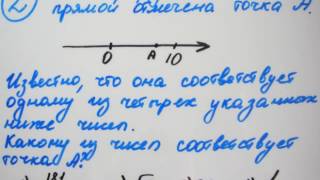 2) прямой отмечена точка А.
0 А 10
Известно, что она соответствует
одному из четырех указанных
ниже чисел.
Какому из чисел соответствует
точка А?